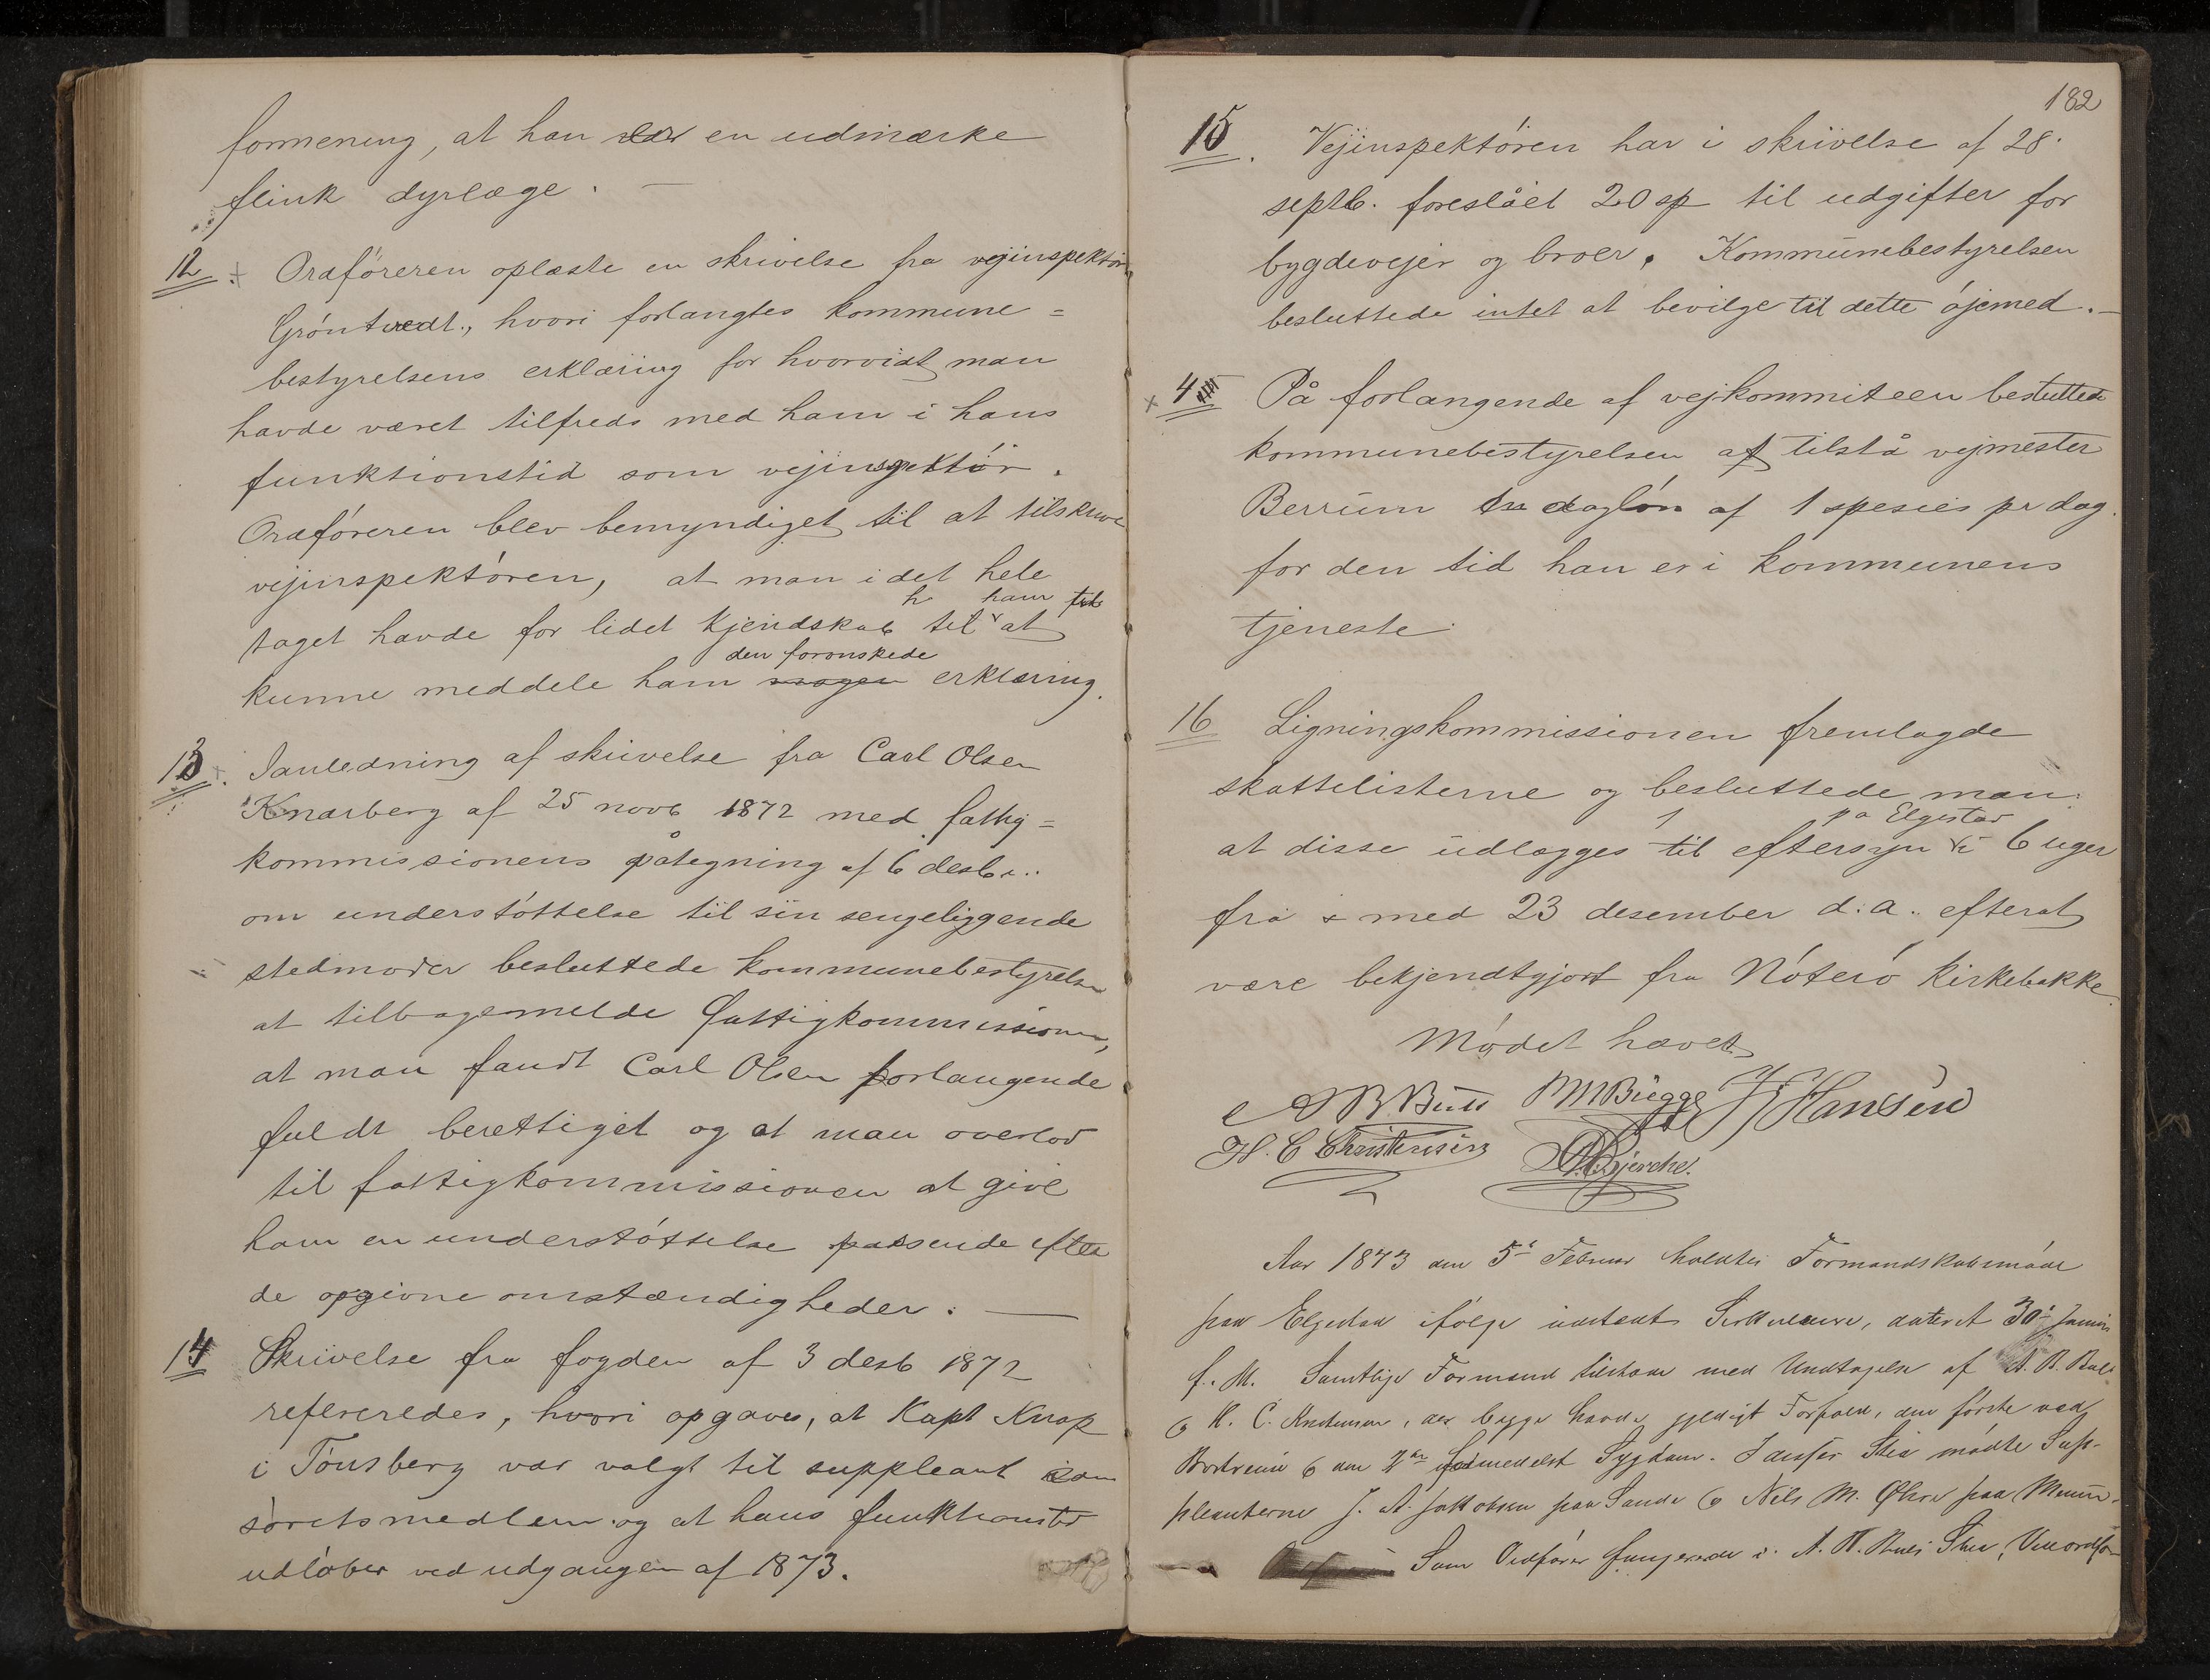 formening, at han er en udmærke
flink dyrlæge. —
12. Ordføreren oplæste en skrivelse fra vejinspektør
Gróntvedt, hvori forlangtes kommune=
bestyrelsens erklæring for hvorvidt man
havde været tilfreds med ham i hans
funktionstid som vejinspektór.
Ordfóreren blev bemyndiget til at tilskrive
vejinspektóren, at man i det hele
taget havde for lidet kjendskab til ham til at
kunne meddele ham den forónskede erklæring.
13. Ianledning af skrivelse fra Carl Olsen
Knarberg af 25 novb 1872 med fattig=
kommissionens påtegning af 6 desbr.
om understóttelse til sin sengeliggende
stedmoder besluttede kommunebestyrelsen
at tilbagemelde fattigkommissionen,
at man fandt Carl Olsen forlangende
fuldt berettiget og at man overlod
til fattigkommissionen at give
ham en understóttelse passende efter
de opgivne omstændigheder. —
14 Skrivelse fra fogden af 3 desb 1872
refereredes, hvori opgaves, at Kapt Knap
i Tónsberg var valgt til suppleant som
sóretsmedlem og at hans funktionstid
udlóber ved udgangen af 1873.
182
15. Vejinspektóren har i skrivelse af 28.
septb. foreslået 20 sp til udgifter for
bygdeveier og broer. Kommunebestyrelsen
besluttede intet at bevilge til dette ójemed. —
4 På forlangende af vejkommiteen besluttede
kommunebestyrelsen at tilstå vejmester
Berrum en daglón af 1 spesies pr dag
for den tid han er i kommunens
tjeneste
16 Ligningskommissionen fremlagde
skattelisterne og besluttede man
at disse udlægges til eftersyn på Elgestad i 6 uger
fra & med 23 desember d: a. efterat
være bekjendtgjort fra Nóteró kirkebakke
Módet hævet
A B Bull M Bugge J Hansen
H. C Christensen Gjerche.
Aar 1873 den 5te Februar holdtes Formandskabsmóde
paa Elgestad ifólge udstedt Sirkulære, dateret 30te Januar
f. M. Samtlige Formænd tilstede med Undtagelse af A. B. Bull
& H. C. Kristensen, der begge havde gyldigt Forfald, den fórste ved
Bortreise & den 2den formedelst Sygdom. I deres Sted módte Sup-
pleanterne J. A. Jakobsen paa Sande & Nils M. Ohra paa
Som Ordfórer fungerede i A. B. Buls Sted, Viceordfó